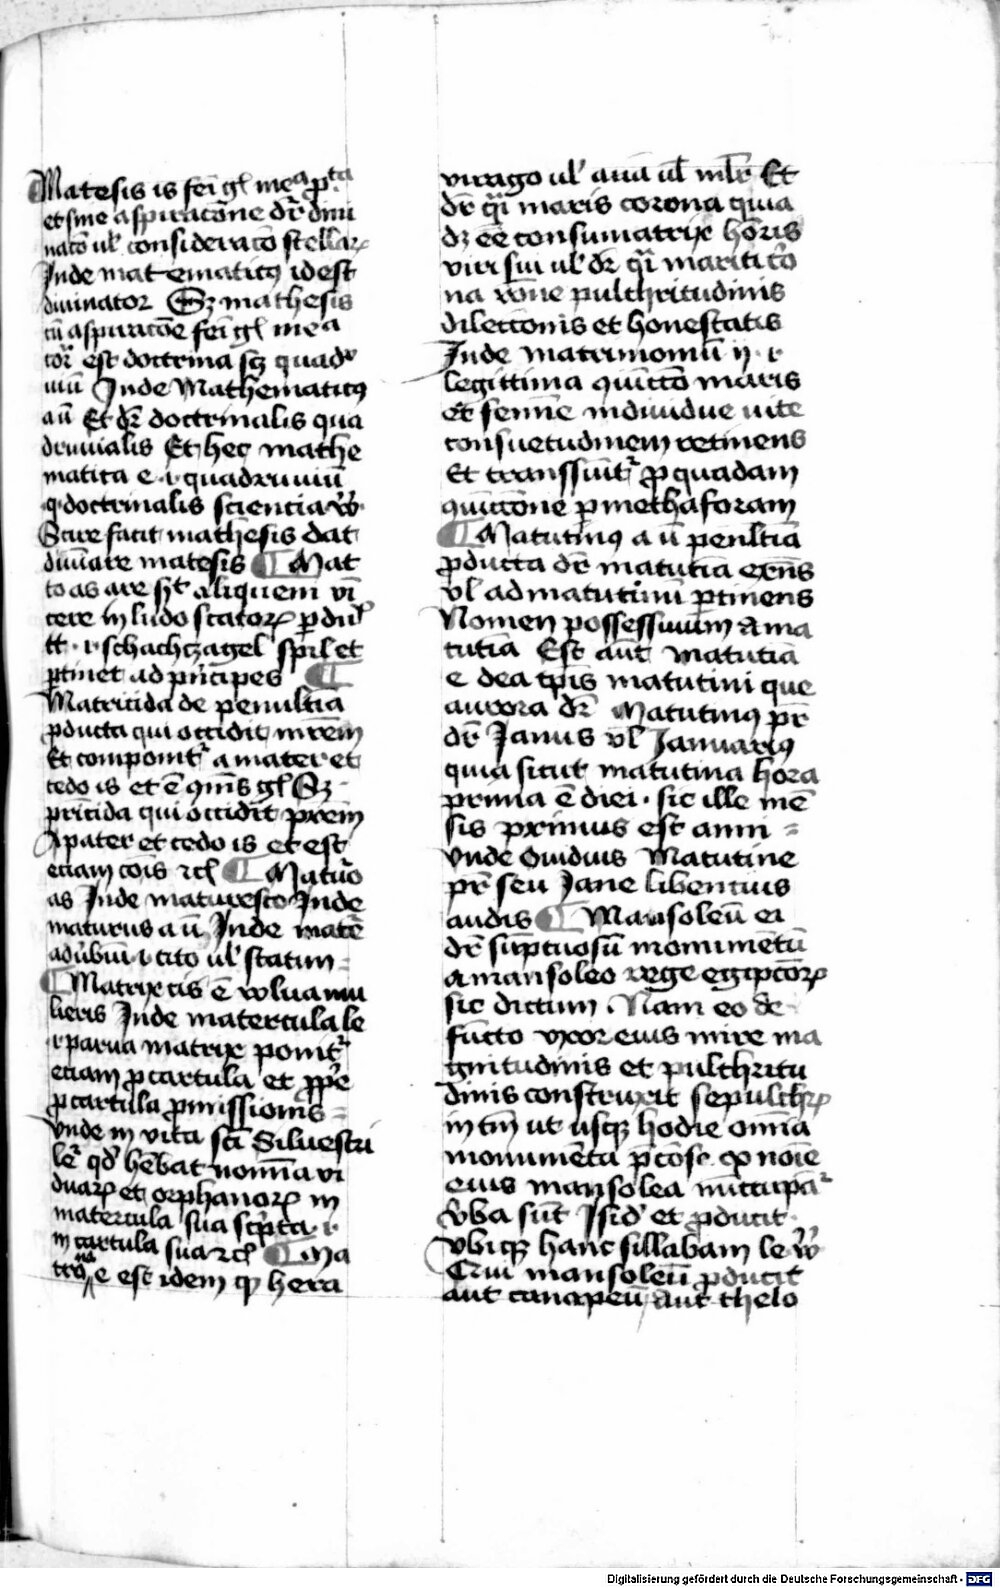 Matesis is fēi gl̄ me a p.ta
et sine aspiracōne dr̄ diui
nacō ul' consideracō stellaꝝ
Inde matematicꝯ id est
diuinator Sꝫ mathesis
cū aspiracōe fēi gl̄ me a
cor̄ est doctrina scꝫ quadr
uiū Inde Mathematicꝯ
a ū Et dr̄ doctrinalis qua
druuialis Et hec mathe
matica e .i. quadruuiū
q. doctrinalis sciencia vꝰ
Scire facit mathesis dat
diuīare matesis ¶ Mat
to as are sꝫ aliquem vī
cere in ludo scacoꝝ
.i. schachczagel spil et
ptinet ad pncipes ¶
Matricida de penultīa
ꝓducta qui occidit mrēm
Et componit᷑ a mater et
cedo is et ē ꝯmīs gl̄ Sꝫ
pricida qui occidit prēm
A pater et cedo is et est
eciam cōis rc̄ ¶ Maturo
as Inde maturesco Inde
maturus a ū Inde matē
adubiū .i. cito ul' statim =
¶ Matrix cis ē volua mu
lieris Inde matercula le
.i. parua matrix ponit᷑
eciam ꝓ cartula et ꝓpe
ꝓ cartula ꝓmissionis =
Vnde in vita scī Siluestri
le᷑ qd' hēbat nomīa vi
duaꝝ et orphanoꝝ in
matercula sua scpta .i.
in cartula sua rc̄ ¶ Ma
trōna e est idem qꝫ hera
virago ul' aua ul' mlr̄ Et
dr̄ q̄i maris corona quia
dꝫ eē consumatrix hōris
viri sui ul' dr̄ q̄i mariti cō
na rōne pulchritudinis
dileccōnis et honestatis
Inde matrimoniū ij .i.
legittima ꝯiūccō maris
et femīe indiuidue vite
consuetudinem retinens
Et transsūit᷑ ꝓ quadam
ꝯiūccōne p methaforam
¶ Matutinꝯ a ū penltīa
ꝓducta dr̄ matutīa exn̄s
vl' ad matutinū ꝑtinens
Nomen possessiuum a ma
tutīa Est aūt matutīa
e dea tp̄is matutini que
aurora dr̄ Matutinꝯ pr̄
dr̄ Janus vl' Januariꝯ
quia sicut matutina hora
prima ē diei . sic ille mē
sis primus est anni =
Vnde Ouidius Matutine
pr̄ seu Jane libencius
audis ¶ Mausoleū ei
dr̄ sūptuosū monumētū
a mausoleo rege egipcōꝝ
sic dictum . Nam eo de
fūcto vxor eius mire ma
gnitudinis et pulchritu
dinis construxit sepulchꝝ
in tm̄ ut usqꝫ hodie omīa
monumēta ꝓcōsa qꝫ noīe
eius mausolea nūccupāt᷑
vba sūt Isid' et ꝓducit
vbiqꝫ hanc sillabam le vꝰ
Crui mausoleū ꝓducit
aut canapeū aut thelo